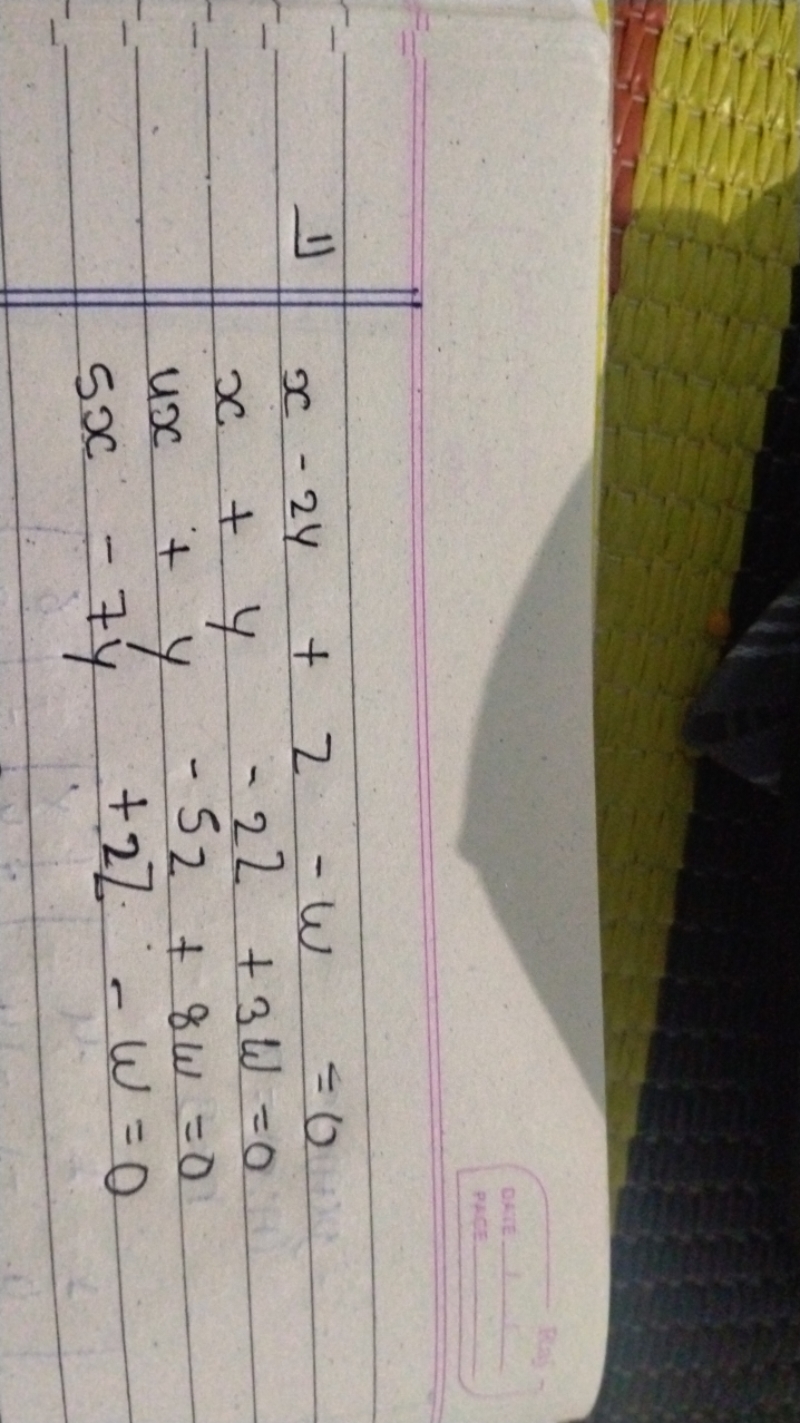 Raj
DATE
PAGE
x - 2y + z - w = 0
x + y - 2z + 3w = 0
4x + y - 5z + 8w = 0
5x - 7y + 2z - w = 0